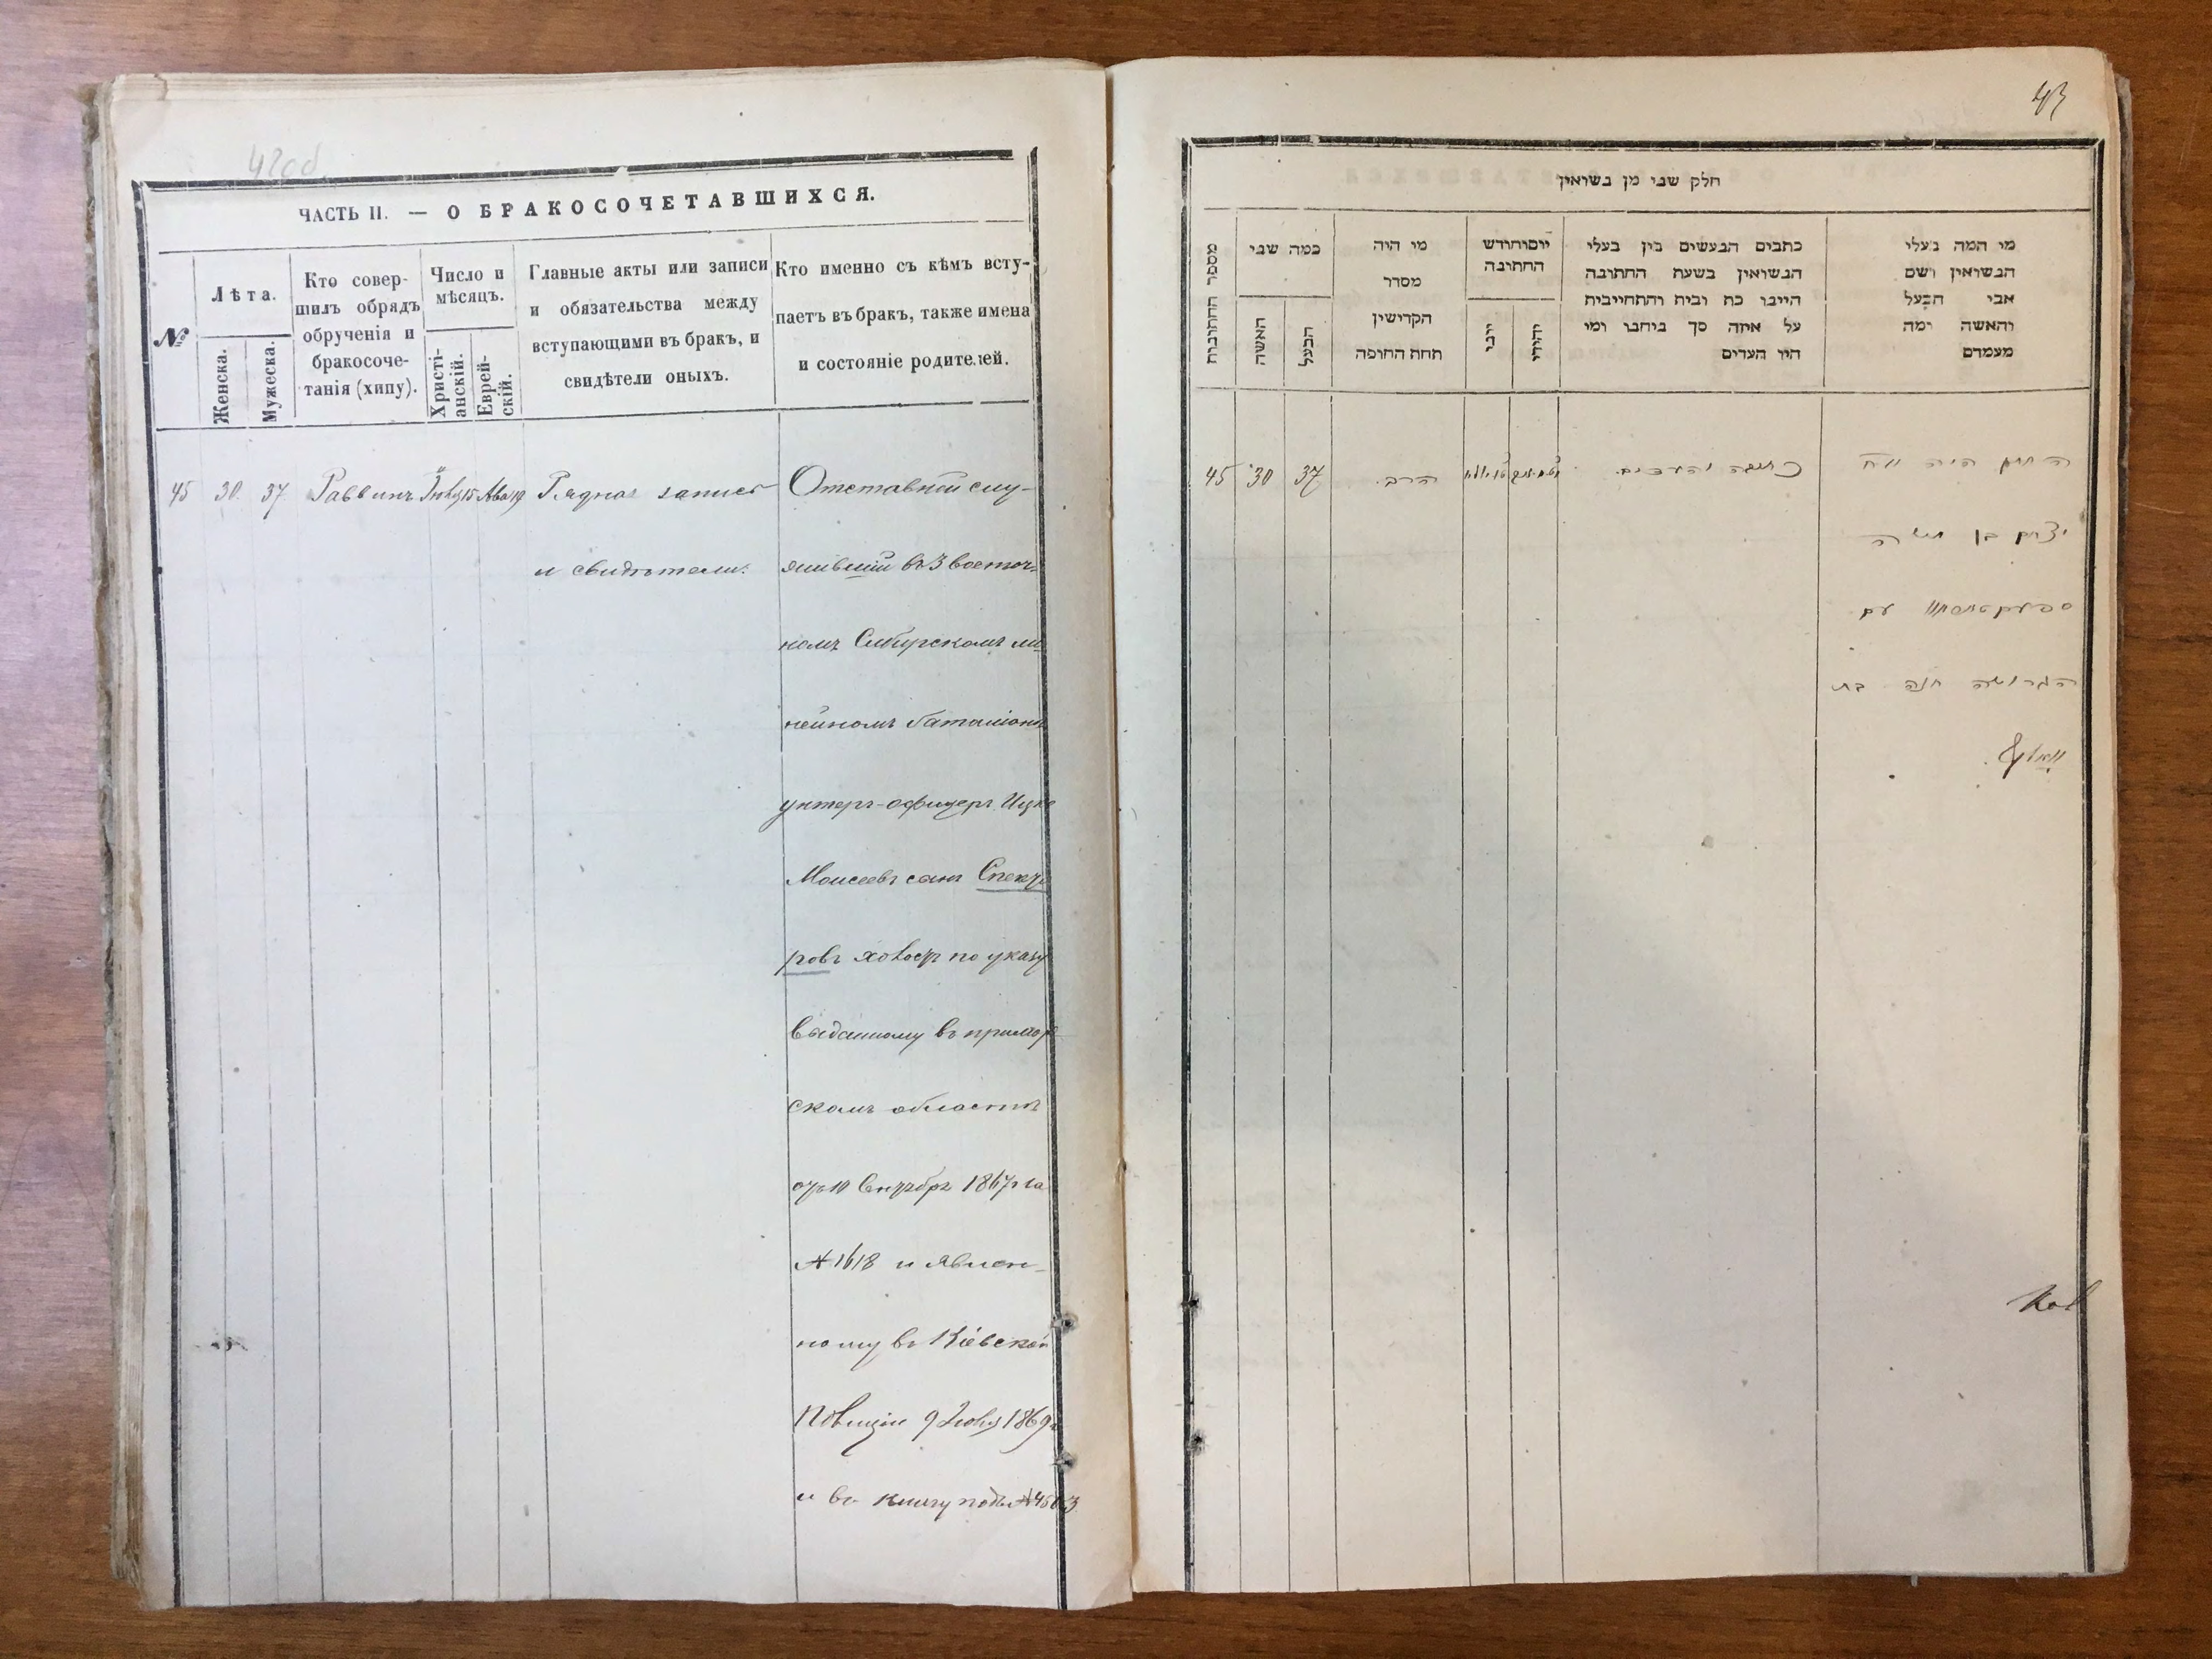 42об.
ЧАСТЬ II. — О БРАКОСОЧЕТАВШИХСЯ.
№
Лѣта.
Женска.
Мужеска.
Кто совер-
шилъ обрядъ
обрученія и
бракосоче-
танія (хипу).
Число и
мѣсяцъ.
Христі-
анскій.
Еврей-
скій.
Главные акты или записи
и обязательства между
вступающими въ бракъ, и
свидѣтели оныхъ.
Кто именно съ кѣмъ всту-
паетъ въ бракъ, также имена
и состояніе родителей.
45 30. 37 Раввинъ Іюля 15 Ава 19 Рядная запись
и свидѣтели.
Отставной слу-
жившій въ 3 восточ-
номъ Сибирскомъ ли-
нейномъ баталіонѣ
унтеръ-офицеръ Ицко
Моисеевъ сынъ Спекто
ровъ холост по указу
выданному въ примор
скомъ области
1867 года
№ 1618 и явлен-
ному въ Кіевской
Полиціи 9 Іюля 1869 г
и въ книгу подъ №
43
חלק שני מן נשואין
מספר החתונות
כמה שני
האשה
הבעל
מי היה
מסדר
הקדישין
תחת החופה
יום וחודש
החתונה
יוני
יהודי
כתבים הנעשים בין בעלי
הנשואין בשעת החתונה
היינו כת ובית והתחייבית
על איזה סך ביחבו ומי
היו העדים
מי המה בעלי
הנשואין ושם
אבי הבעל
והאשה ומה
מעמדם
45 30 37 הרב.
כתובה והעדים.
החתן היה
יצחק בן משה
עם
הגרושה חנה בת